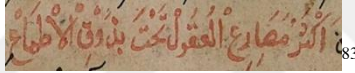 أَكْثَرُ مَصَارِعِ الْعُقُولِ تَحْتَ بُرُوقِ الْأَطْمَاعِ